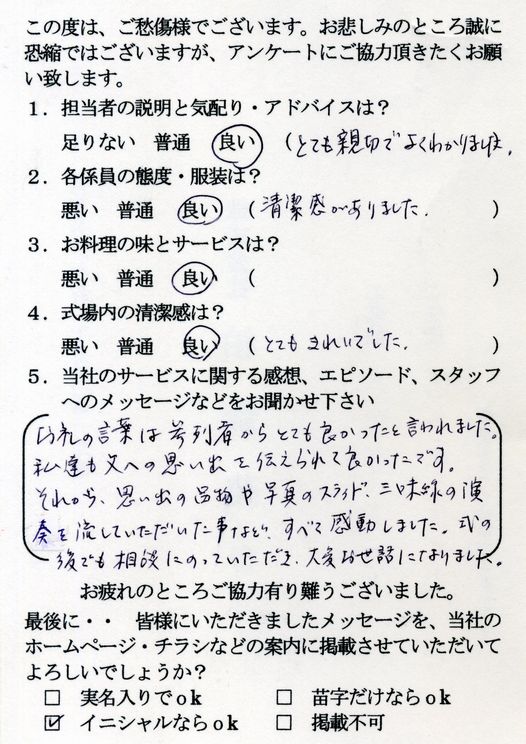 この度は、ご愁傷様でございます。お悲しみのところ誠に
恐縮ではございますが、アンケートにご協力頂きたくお願
い致します。
1．担当者の説明と気配り・アドバイスは？
足りない 普通 良い （とても親切でよくわかりました。
2．各係員の態度・服装は？
悪い 普通 良い （清潔感がありました。 ）
3．お料理の味とサービスは？
悪い 普通 良い （ ）
4．式場内の清潔感は？
悪い 普通 良い （とてもきれいでした。 ）
5．当社のサービスに関する感想、エピソード、スタッフ
へのメッセージなどをお聞かせ下さい
お礼の言葉は参列者からとても良かったと言われました。
私達も父への思い出を伝えられて良かったです。
それから、思い出の品物や写真のスライド、三味線の演
奏を流していただいた事など、すべて感動しました。式の
後でも相談にのっていただき、大変お世話になりました。
お疲れのところご協力有り難うございました。
最後に・・ 皆様にいただきましたメッセージを、当社の
ホームページ・チラシなどの案内に掲載させていただいて
よろしいでしょうか？
□ 実名入りでｏｋ □ 苗字だけならｏｋ
☑ イニシャルならｏｋ □ 掲載不可